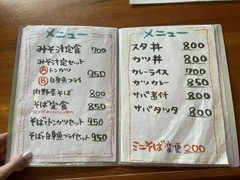 メニュー
みそ汁定食 700
みそ汁定食セット
Ⓐトンカツ 950
Ⓑ白身フライ
内野菜そば 800
そば定食 850
そば・トンカツセット 950
そば・白身フライセット 950
メニュー
スタ丼 800
カツ丼 800
カレーライス 700
カツカレー 850
サバ煮付 800
サバタツタ 800
ミニそば変更 200